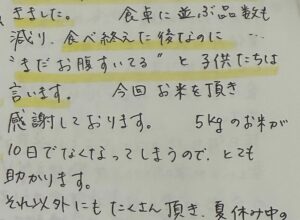 きました。 食卓に並ぶ品数も
減り、食べ終えた後なのに …
"まだお腹すいてる" と 子供たちは
言います。 今回 お米を頂き
感謝しております。 5kgのお米が
10日でなくなってしまうので、とても
助かります。
それ以外にも たくさん 頂き、夏休み中の